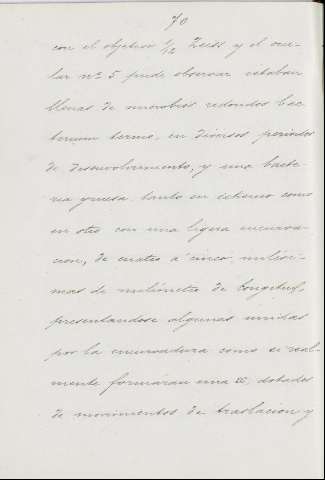 70
con el objetivo 1/12 Zeiss y el ocu-
lar nº 5 pude observar estaban
llenas de microbios redondos bac-
terium termo, en diversos periodos
de desenvolvimiento, y una bacte-
ria gruesa tanto en extremo como
en otro con una ligera encurva-
cion, de cuatro á cinco milési-
mas de milímetro de longitud,
presentandose algunas unidas
por la encurvadura como si real-
mente formáran una x, dotadas
de movimientos de traslacion y